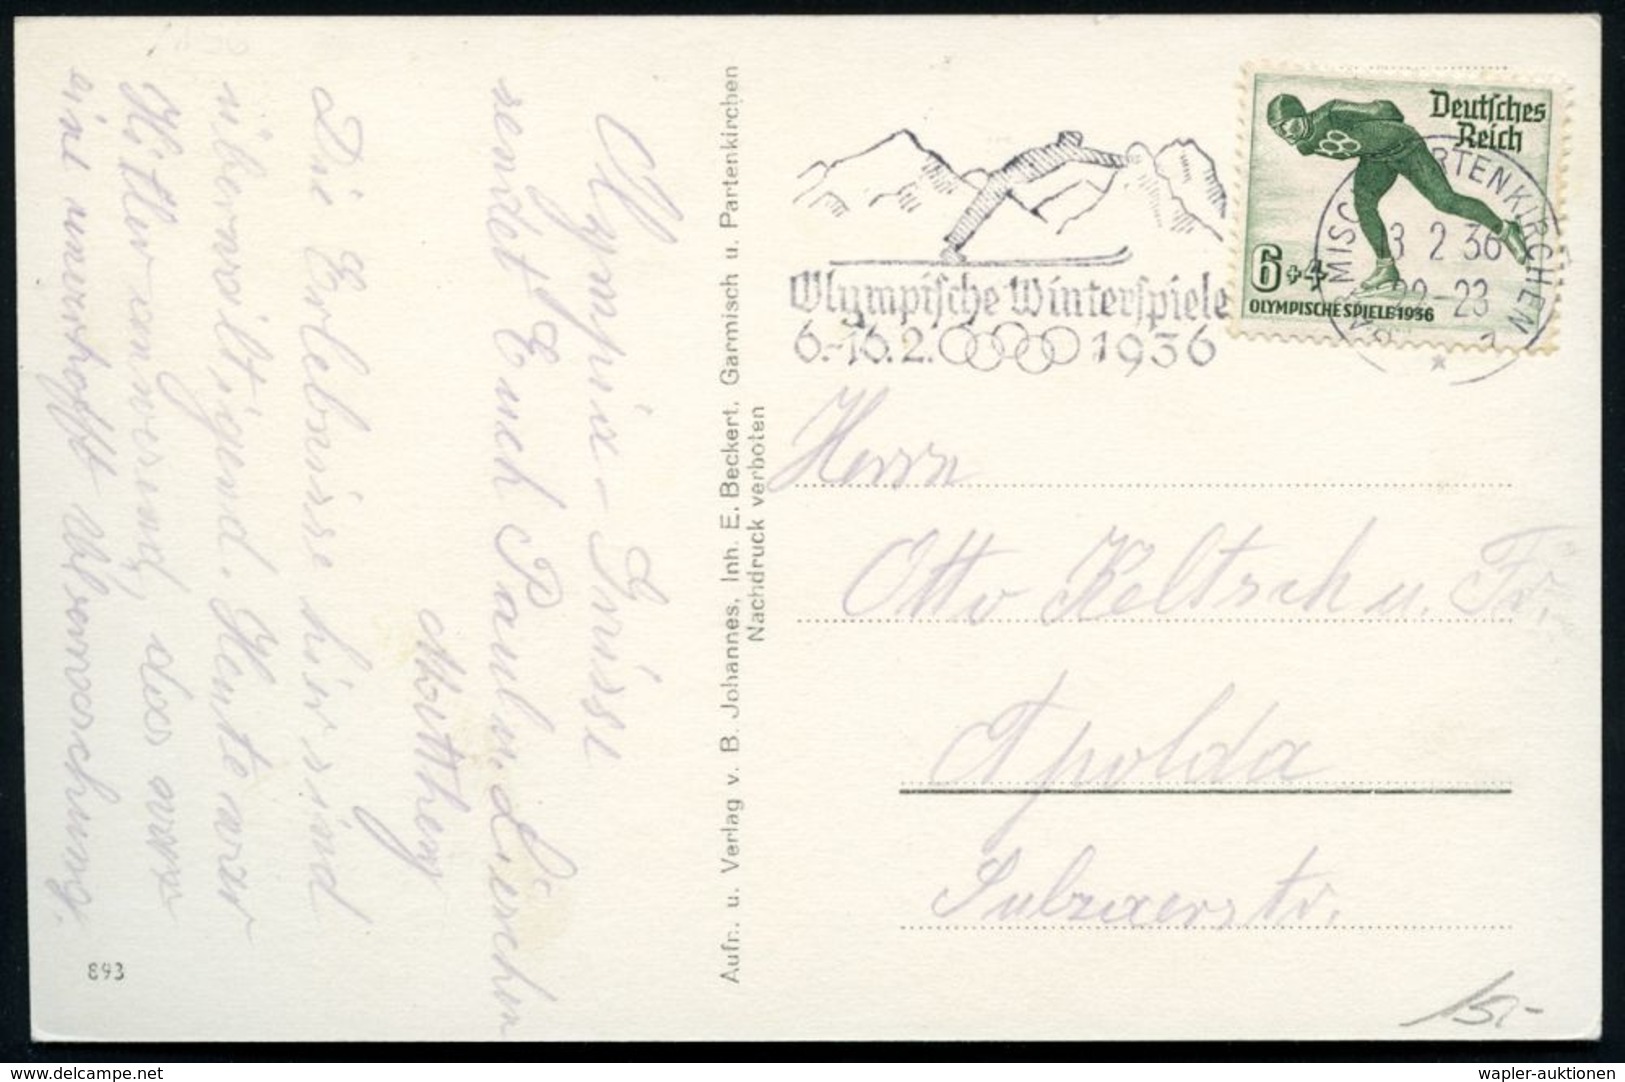 Olympia-Grüsse
sendet Euch Paul u. Lieschen
Matthey
Die Erlebnisse hir sind
überwältigend. Heute war
Hitler anwesend, das war
eine unverhofft Überraschung.
893
Aufn. u. Verlag v. B. Johannes, Inh. E. Beckert, Garmisch u. Partenkirchen
Nachdruck verboten
Olympische Winterspiele
6.-16.2. 1936
Deutsches
Reich
6+4
OLYMPISCHE SPIELE 1936
GARMISCH-PARTENKIRCHEN
3 2 36
22-23
Herrn
Otto Keltsch u. Fr.
Apolda
Sulzaerstr.
15,-
delcampe.net
wapler-auktionen